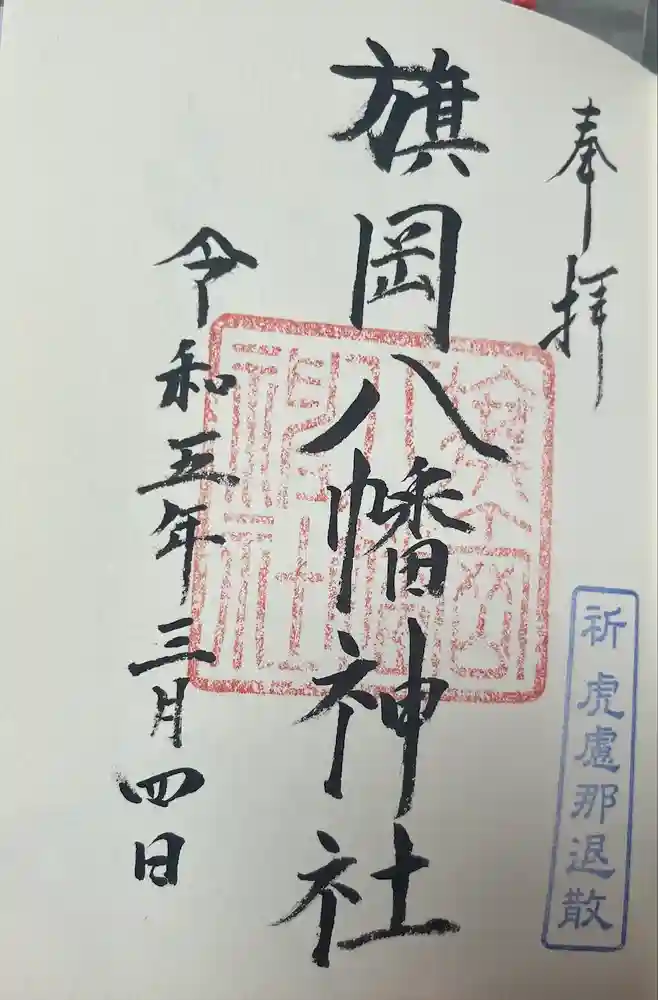 奉拝
旗岡八幡神社
令和五年三月四日
祈虎盧那退散